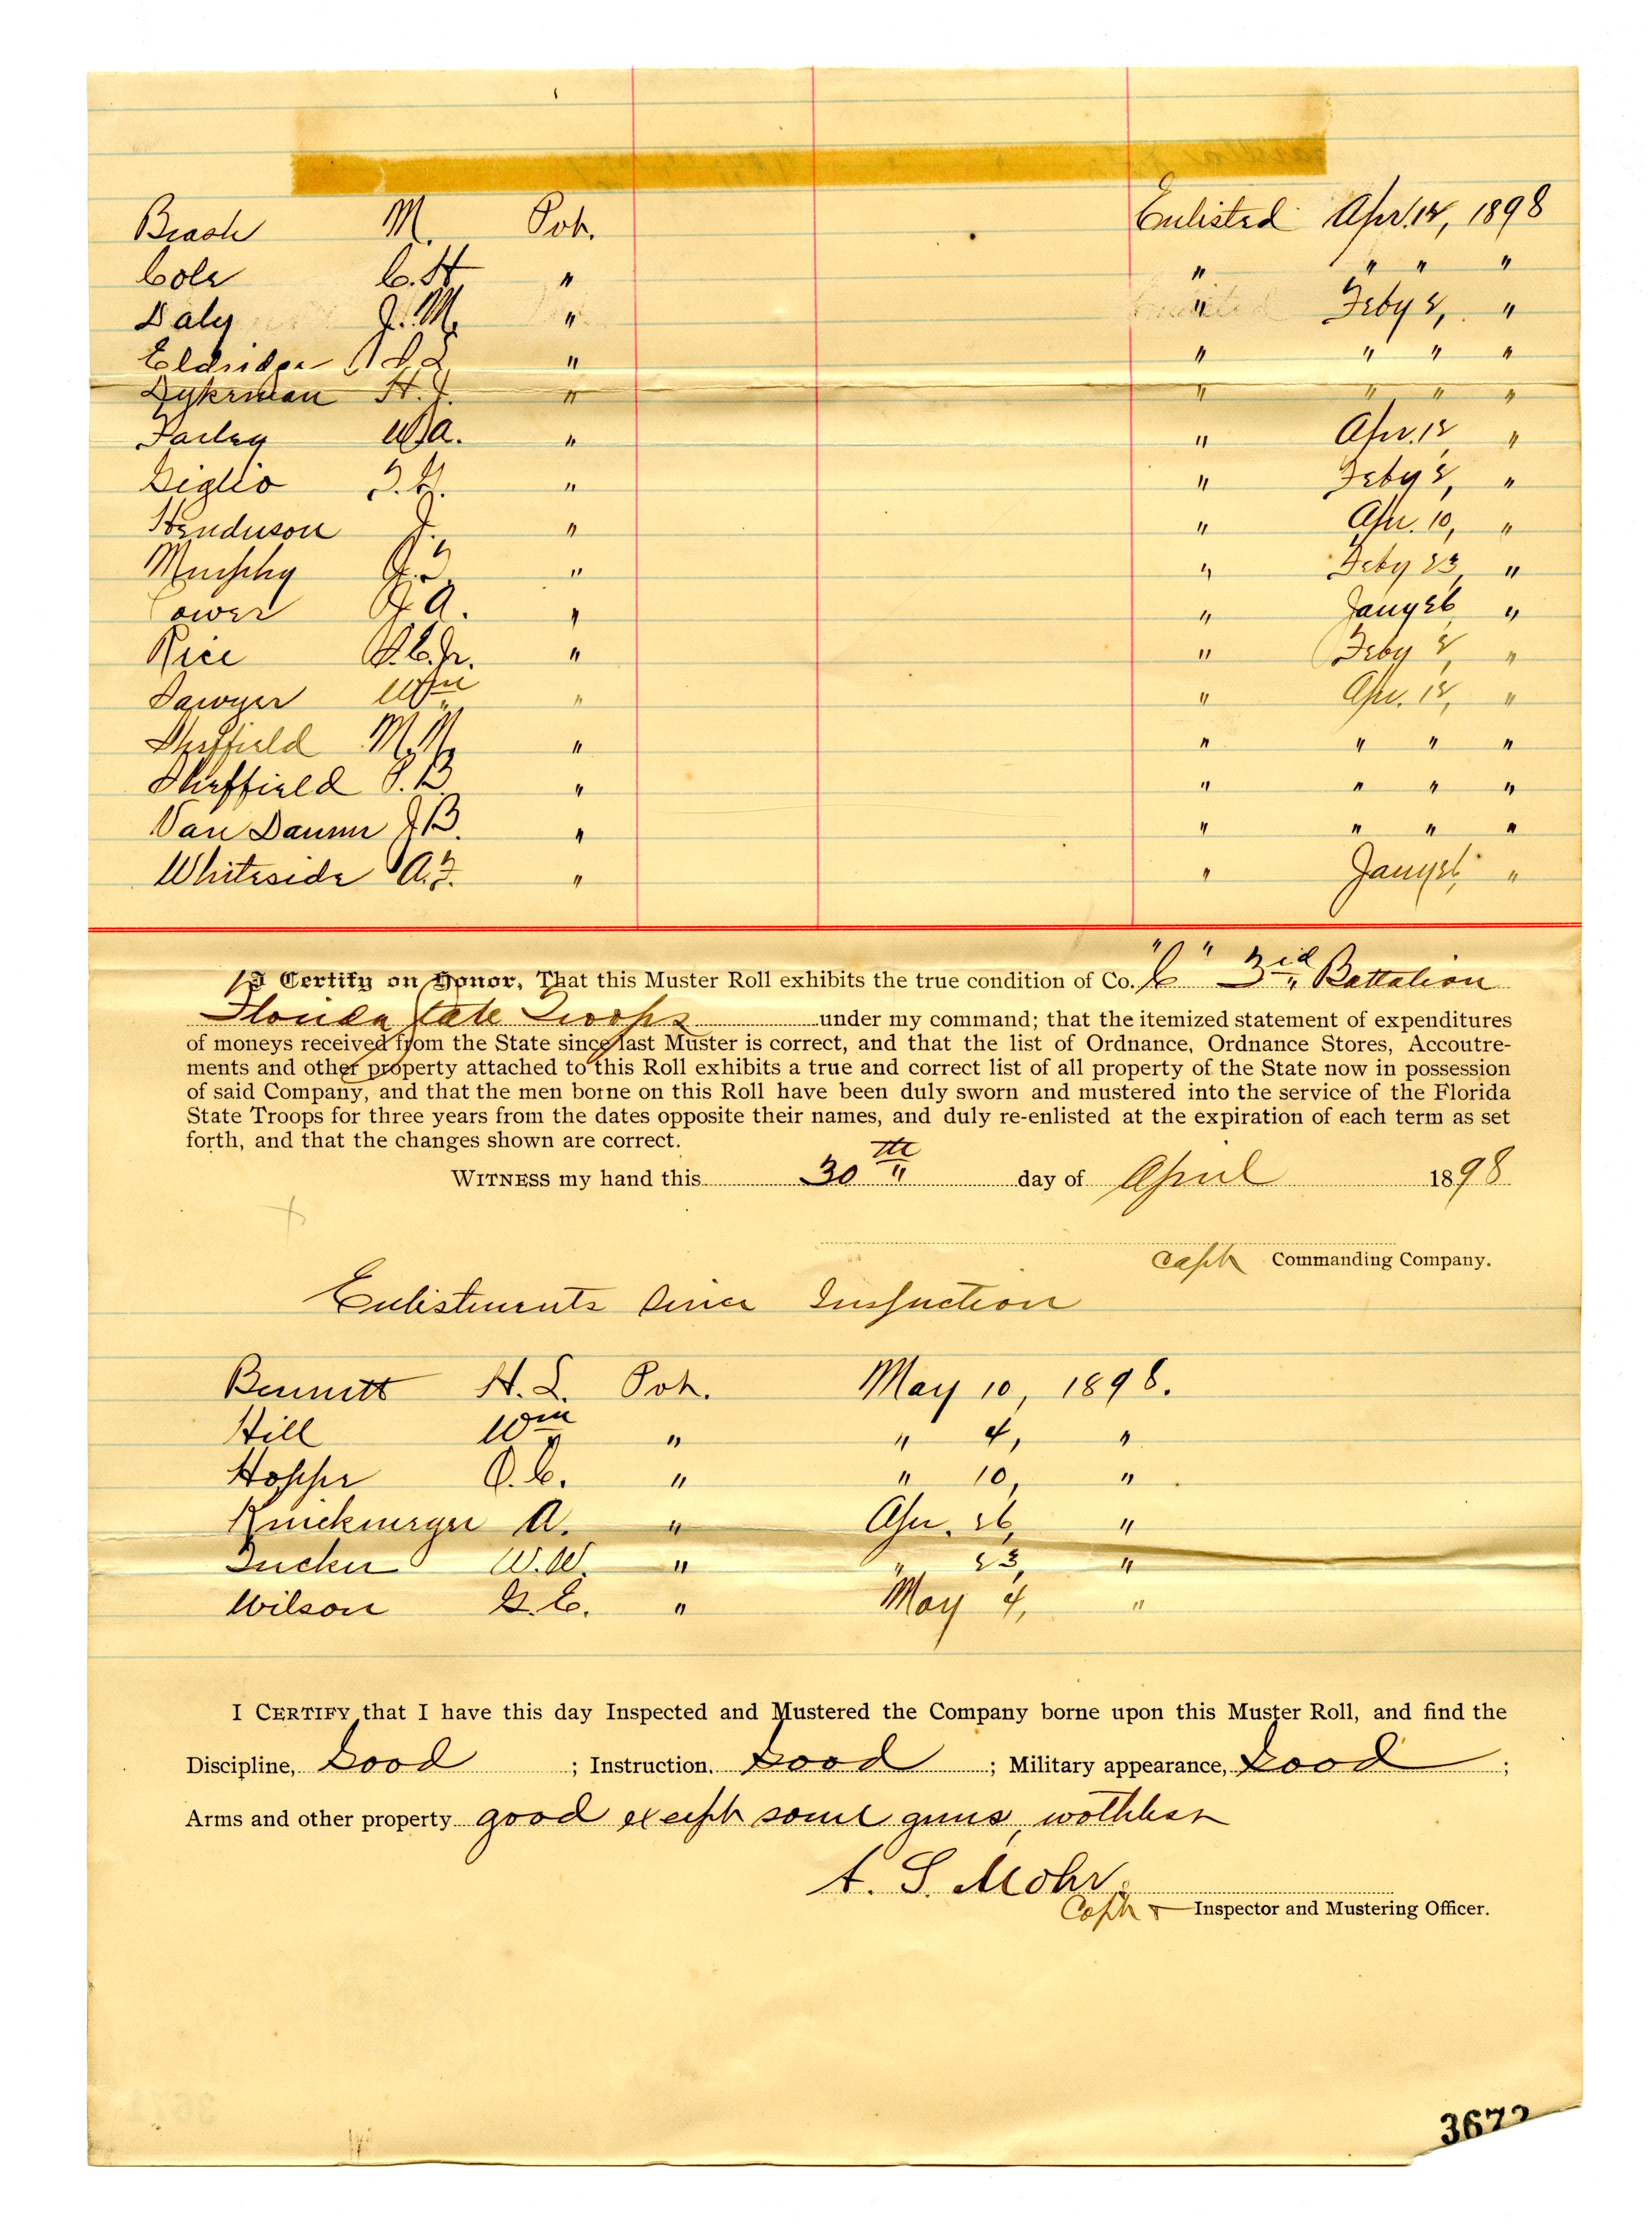 Brash M. Pvt. Enlisted Apr. 12, 1898
Cole C. H " " " " "
Daly J. M. " " Feby 2, "
Eldridge " " " " "
Dykeman H. J. " " " " "
Farley W. A. " " Apr. 12 "
Giglio " " Feby 2, "
Henderson J. " " Apr. 10, "
Murphy J. F. " " Feby 23, "
Power J. A. " " Jany 26 "
Rice Jr. " " Feby 2, "
Sawyer Wm " " Apr. 12, "
Sheffield M. M. " " " " "
Sheffield P. B. " " " " "
Van J. B. " " " " "
Whiteside A. F. " " Jany 26, "
I Certify on Honor, That this Muster Roll exhibits the true condition of Co. "C" 3rd Battalion
Florida State Troops under my command; that the itemized statement of expenditures
of moneys received from the State since last Muster is correct, and that the list of Ordnance, Ordnance Stores, Accoutre-
ments and other property attached to this Roll exhibits a true and correct list of all property of the State now in possession
of said Company, and that the men borne on this Roll have been duly sworn and mustered into the service of the Florida
State Troops for three years from the dates opposite their names, and duly re-enlisted at the expiration of each term as set
forth, and that the changes shown are correct.
WITNESS my hand this 30th day of April 1898
Capt Commanding Company.
Enlistments Since Inspection
Bennett H. L. Pvt. May 10, 1898.
Hill Wm " " 4, "
Hopps O. C. " " 10, "
Knickmeyer A. " Apr. 26, "
Tucker W. W. " " 23, "
Wilson G. E. " May 4, "
I CERTIFY that I have this day Inspected and Mustered the Company borne upon this Muster Roll, and find the
Discipline, Good ; Instruction, Good ; Military appearance, Good ;
Arms and other property good except some guns, wothless
A. S. Mohr
Capt & Inspector and Mustering Officer.
3672